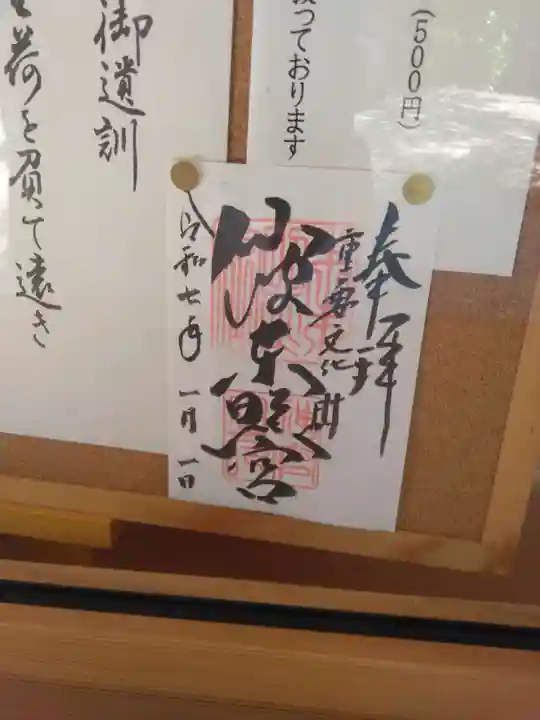 (500円)
扱っております
奉拝
重要文化財
仙波東照宮
令和七年 一月 一日
御遺訓
重荷を負て遠き